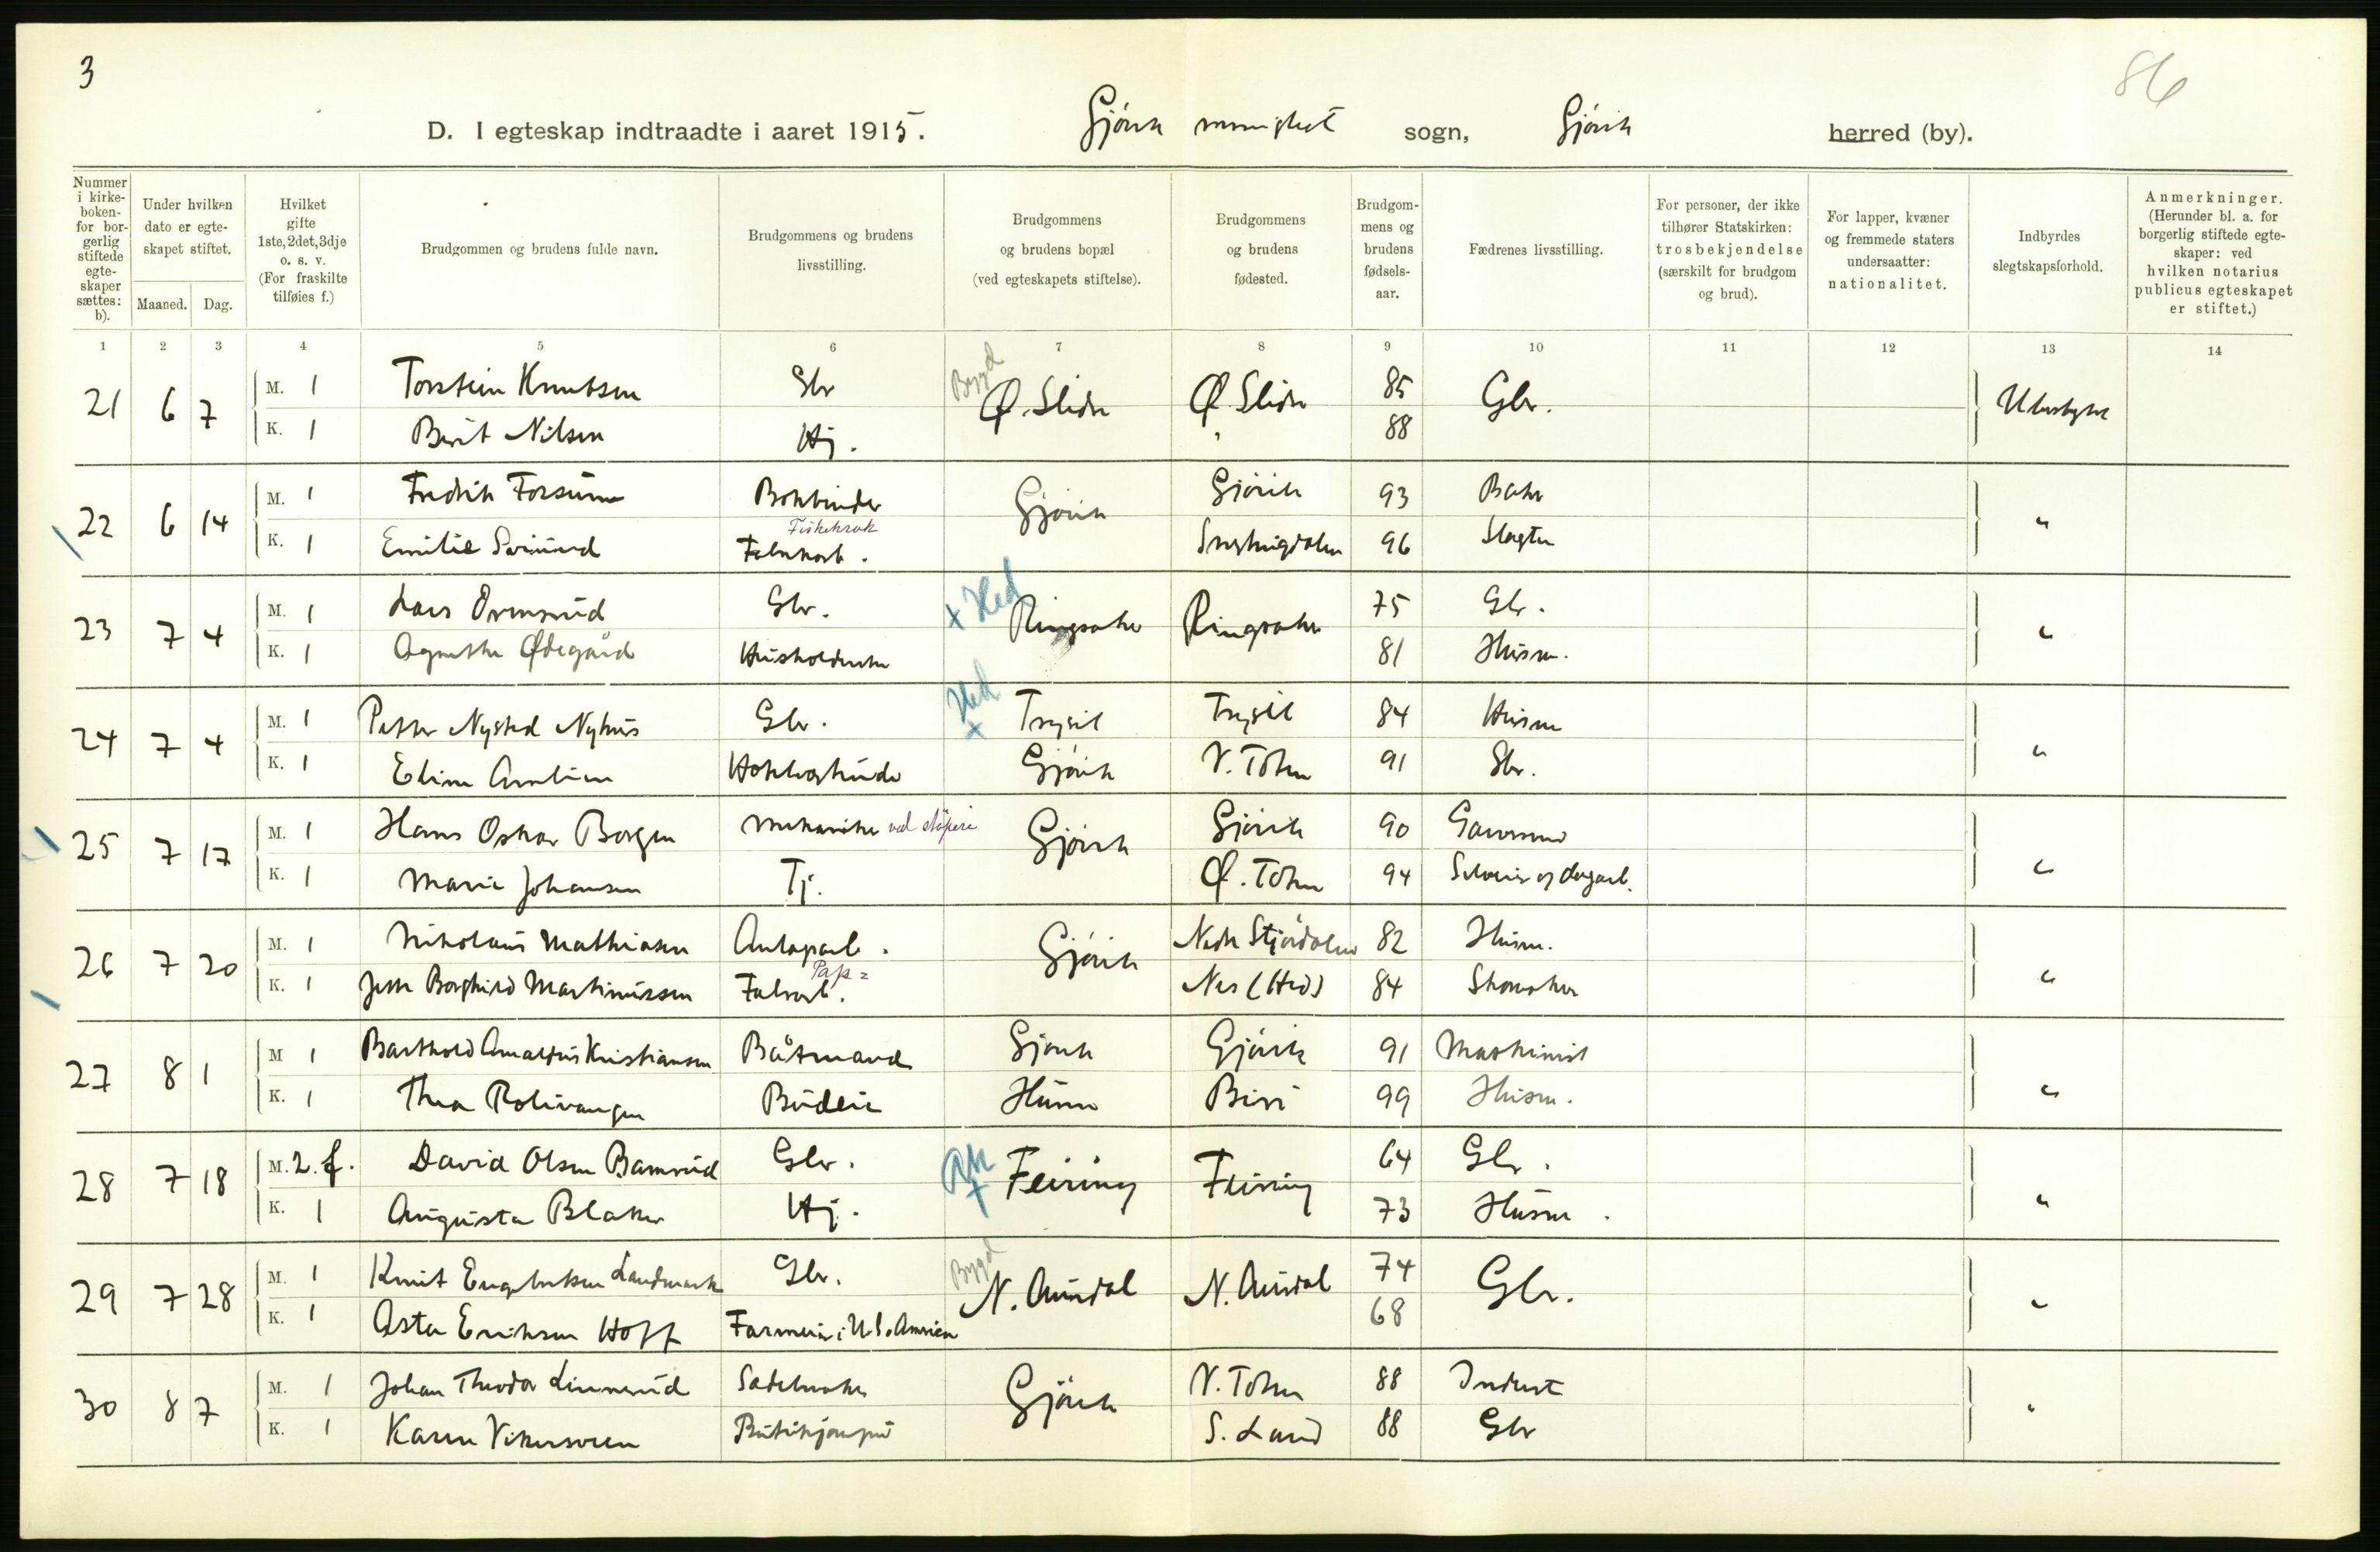 3
86
D. I egteskap indtraadte i aaret 1915. Gjövik menighet sogn, Gjövik herred (by).
Nummer i kirke-boken- for bor-gerlig stiftede egte-skaper sættes: b).
Under hvilken dato er egte-skapet stiftet.
Maaned. Dag.
Hvilket gifte 1ste, 2det, 3dje o. s. v. (For fraskilte tilføies f.)
Brudgommen og brudens fulde navn.
Brudgommens og brudens livsstilling.
Brudgommens og brudens bopæl (ved egteskapets stiftelse).
Brudgommens og brudens fødested.
Brudgom-mens og brudens fødsels-aar.
Fædrenes livsstilling.
For personer, der ikke tilhører Statskirken: trosbekjendelse (særskilt for brudgom og brud).
For lapper, kvæner og fremmede staters undersaatter: nationalitet.
Indbyrdes slegtskapsforhold.
Anmerkninger. (Herunder bl. a. for borgerlig stiftede egte-skaper: ved hvilken notarius publicus egteskapet er stiftet.)
1 2 3 4 5 6 7 8 9 10 11 12 13 14
21 6 7 M. 1 Torstein Knutsen Gbr Bygd Ø. Slidre Ø. Slidre 85 Gbr. Ubeslegtet
K. 1 Berit Nilsen Hj. 88
22 6 14 M. 1 Fredrik Forsum Bokbinder Gjövik Gjövik 93 Baker "
K. 1 Emilie Fiskekrok Fabrikarb. 96 Slagter
23 7 4 M. 1 Lars Ormsrud Gbr. x Hed Ringsaker Ringsaker 75 Gbr. "
K. 1 Agnethe Ødegård Husholderske 81 Husm.
24 7 4 M. 1 Petter Nysted Nyhus Gbr. Hed x Trysil Trysil 84 Husm "
K. 1 Eline Gjövik V. Toten 91 Gbr.
25 7 17 M. 1 Hans Oskar Borgen Mekaniker ved støperi Gjövik Gjövik 90 "
K. 1 Marie Johansen Tj. Ø. Toten 94 Selveier og dagarb.
26 7 20 M. 1 Nikolaus Mathiasen Gjövik Nedr Stjördalen 82 Husm. "
K. 1 Borghild Martinussen Pap= Fabrarb. Nes (Hed) 84 Skomaker
27 8 1 M 1 Barthold Amaldus Kristiansen Båtmand Gjövik Gjövik 91 Maskinist "
K. 1 Thea Rolivangen Budeie Hunn Biri 99 Husm.
28 7 18 M. 2. f. David Olsen Bamrud Gbr. Ak x Feiring Feiring 64 Gbr. "
K. 1 Augusta Blaker Hj. 73 Husm.
29 7 28 M. 1 Knut Engebretsen Landmark Gbr. Bygd N. Aurdal N. Aurdal 74 Gbr. "
K. 1 Asta Eriksen Hoff Farmerin i U.S. Amerika 68
30 8 7 M. 1 Johan Theodor Linnerud Sadelmaker Gjövik V. Toten 88 "
K. 1 Karen S. Land 88 Gbr